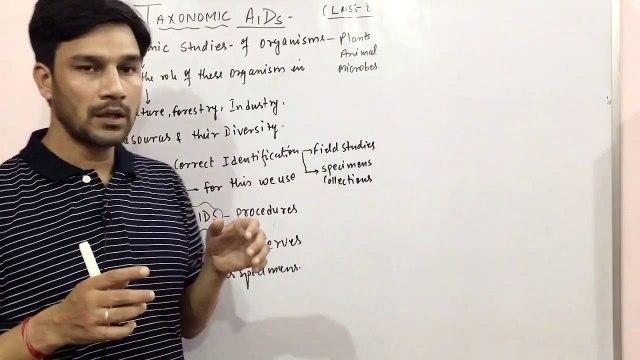 TAXONOMIC AIDs -
CLASS-1
mic studies - of organisms - Plants
Animal
Microbes
the role of these organism in
↓
ture, forestry, Industry.
sources & their Diversity.
Correct Identification → field studies
→ specimens
collections
→ for this we use
IDS - procedures
erves
as specimens.